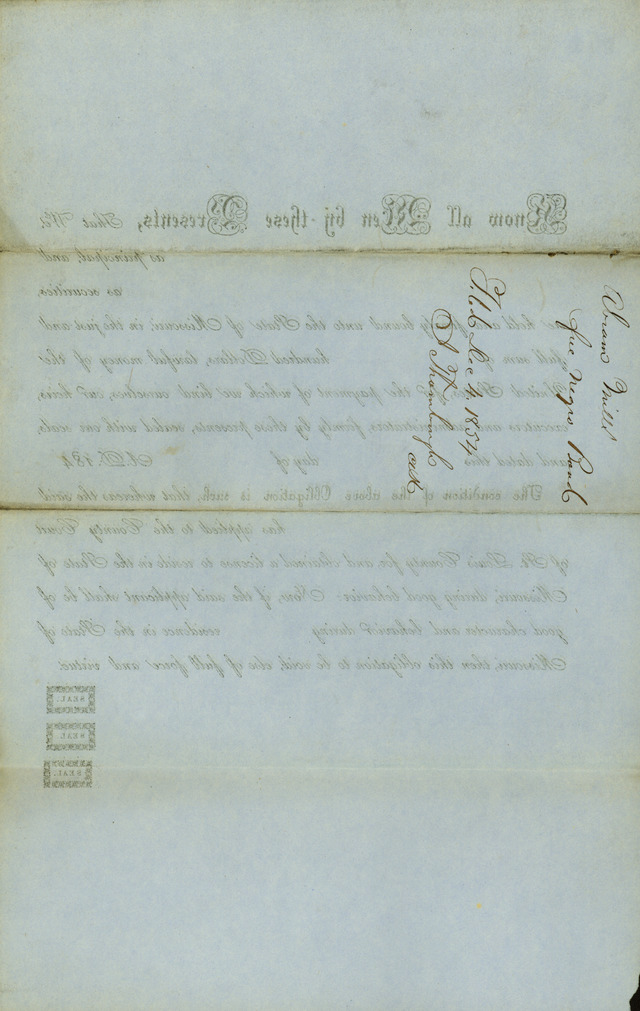 Abram Mills
free Negro Bond
Filed Dec 4. 1854
Know all Men by these Presents, That We
as principal, and
as securities,
held and firmly bound unto the State of Missouri, in the just and
full sum of hundred Dollars, lawful money of the
United States, the payment of which we bind ourselves, our heirs,
executors and administrators, firmly by these presents, sealed with our seals,
and dated this day of A.D. 184
The condition of the above Obligation is such, that whereas the said
has applied to the County Court
of St. Louis County for and obtained a license to reside in the State of
Missouri, during good behavior: Now, if the said applicant shall be of
good character and behavior during residence in the State of
Missouri, then this obligation to be void, else of full force and virtue.
SEAL.
SEAL.
SEAL.